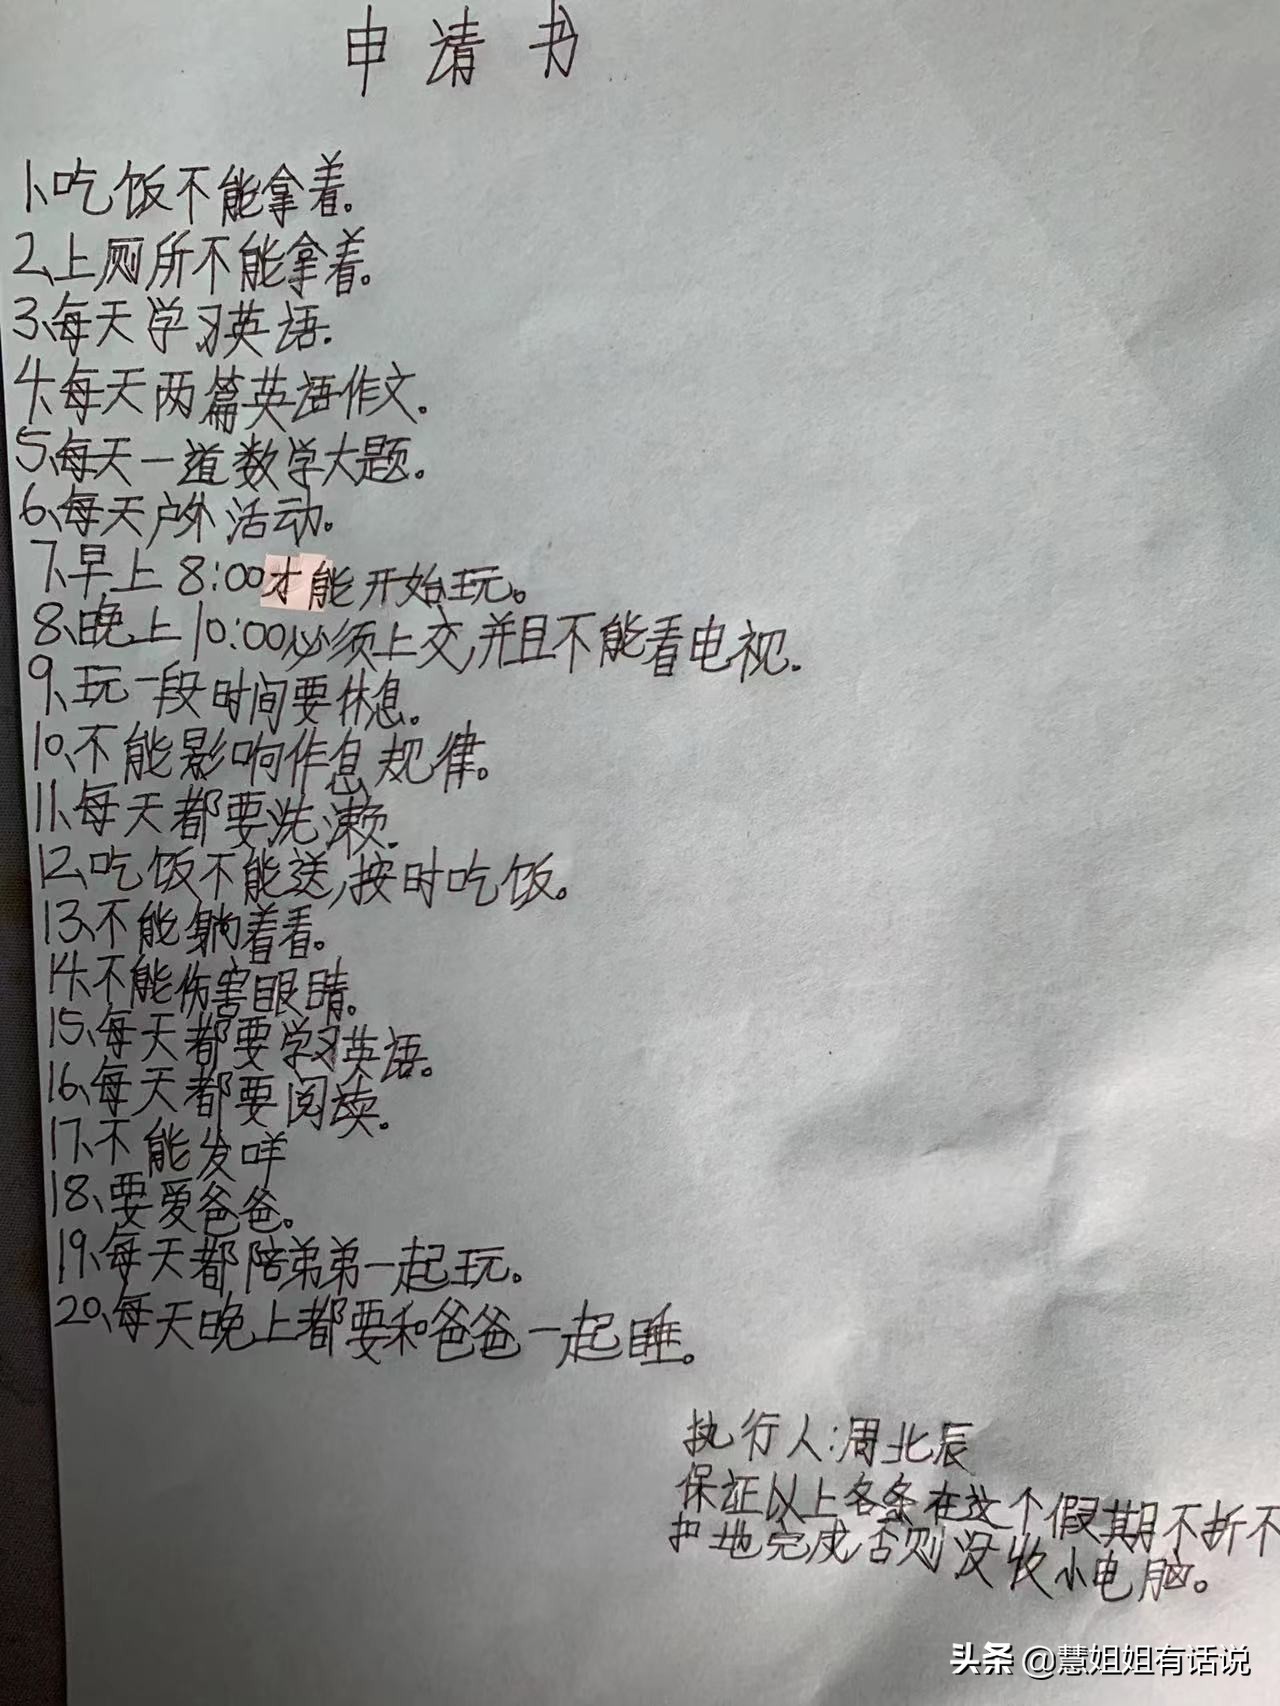 申请书
1、吃饭不能拿着。
2、上厕所不能拿着。
3、每天学习英语.
4、每天两篇英语作文。
5、每天一道数学大题。
6、每天户外活动。
7、早上8:00才能开始玩。
8、晚上10:00必须上交,并且不能看电视.
9、玩一段时间要休息。
10、不能影响作息规律。
11、每天都要洗漱.
12、吃饭不能送,按时吃饭。
13、不能躺着看。
14、不能伤害眼睛。
15、每天都要学习英语。
16、每天都要阅读。
17、不能发咩
18、要爱爸爸。
19、每天都陪弟弟一起玩。
20、每天晚上都要和爸爸一起睡。
执行人:周北辰
保证以上各条在这个假期不折不
扣地完成否则没收小电脑。
头条 @慧姐姐有话说